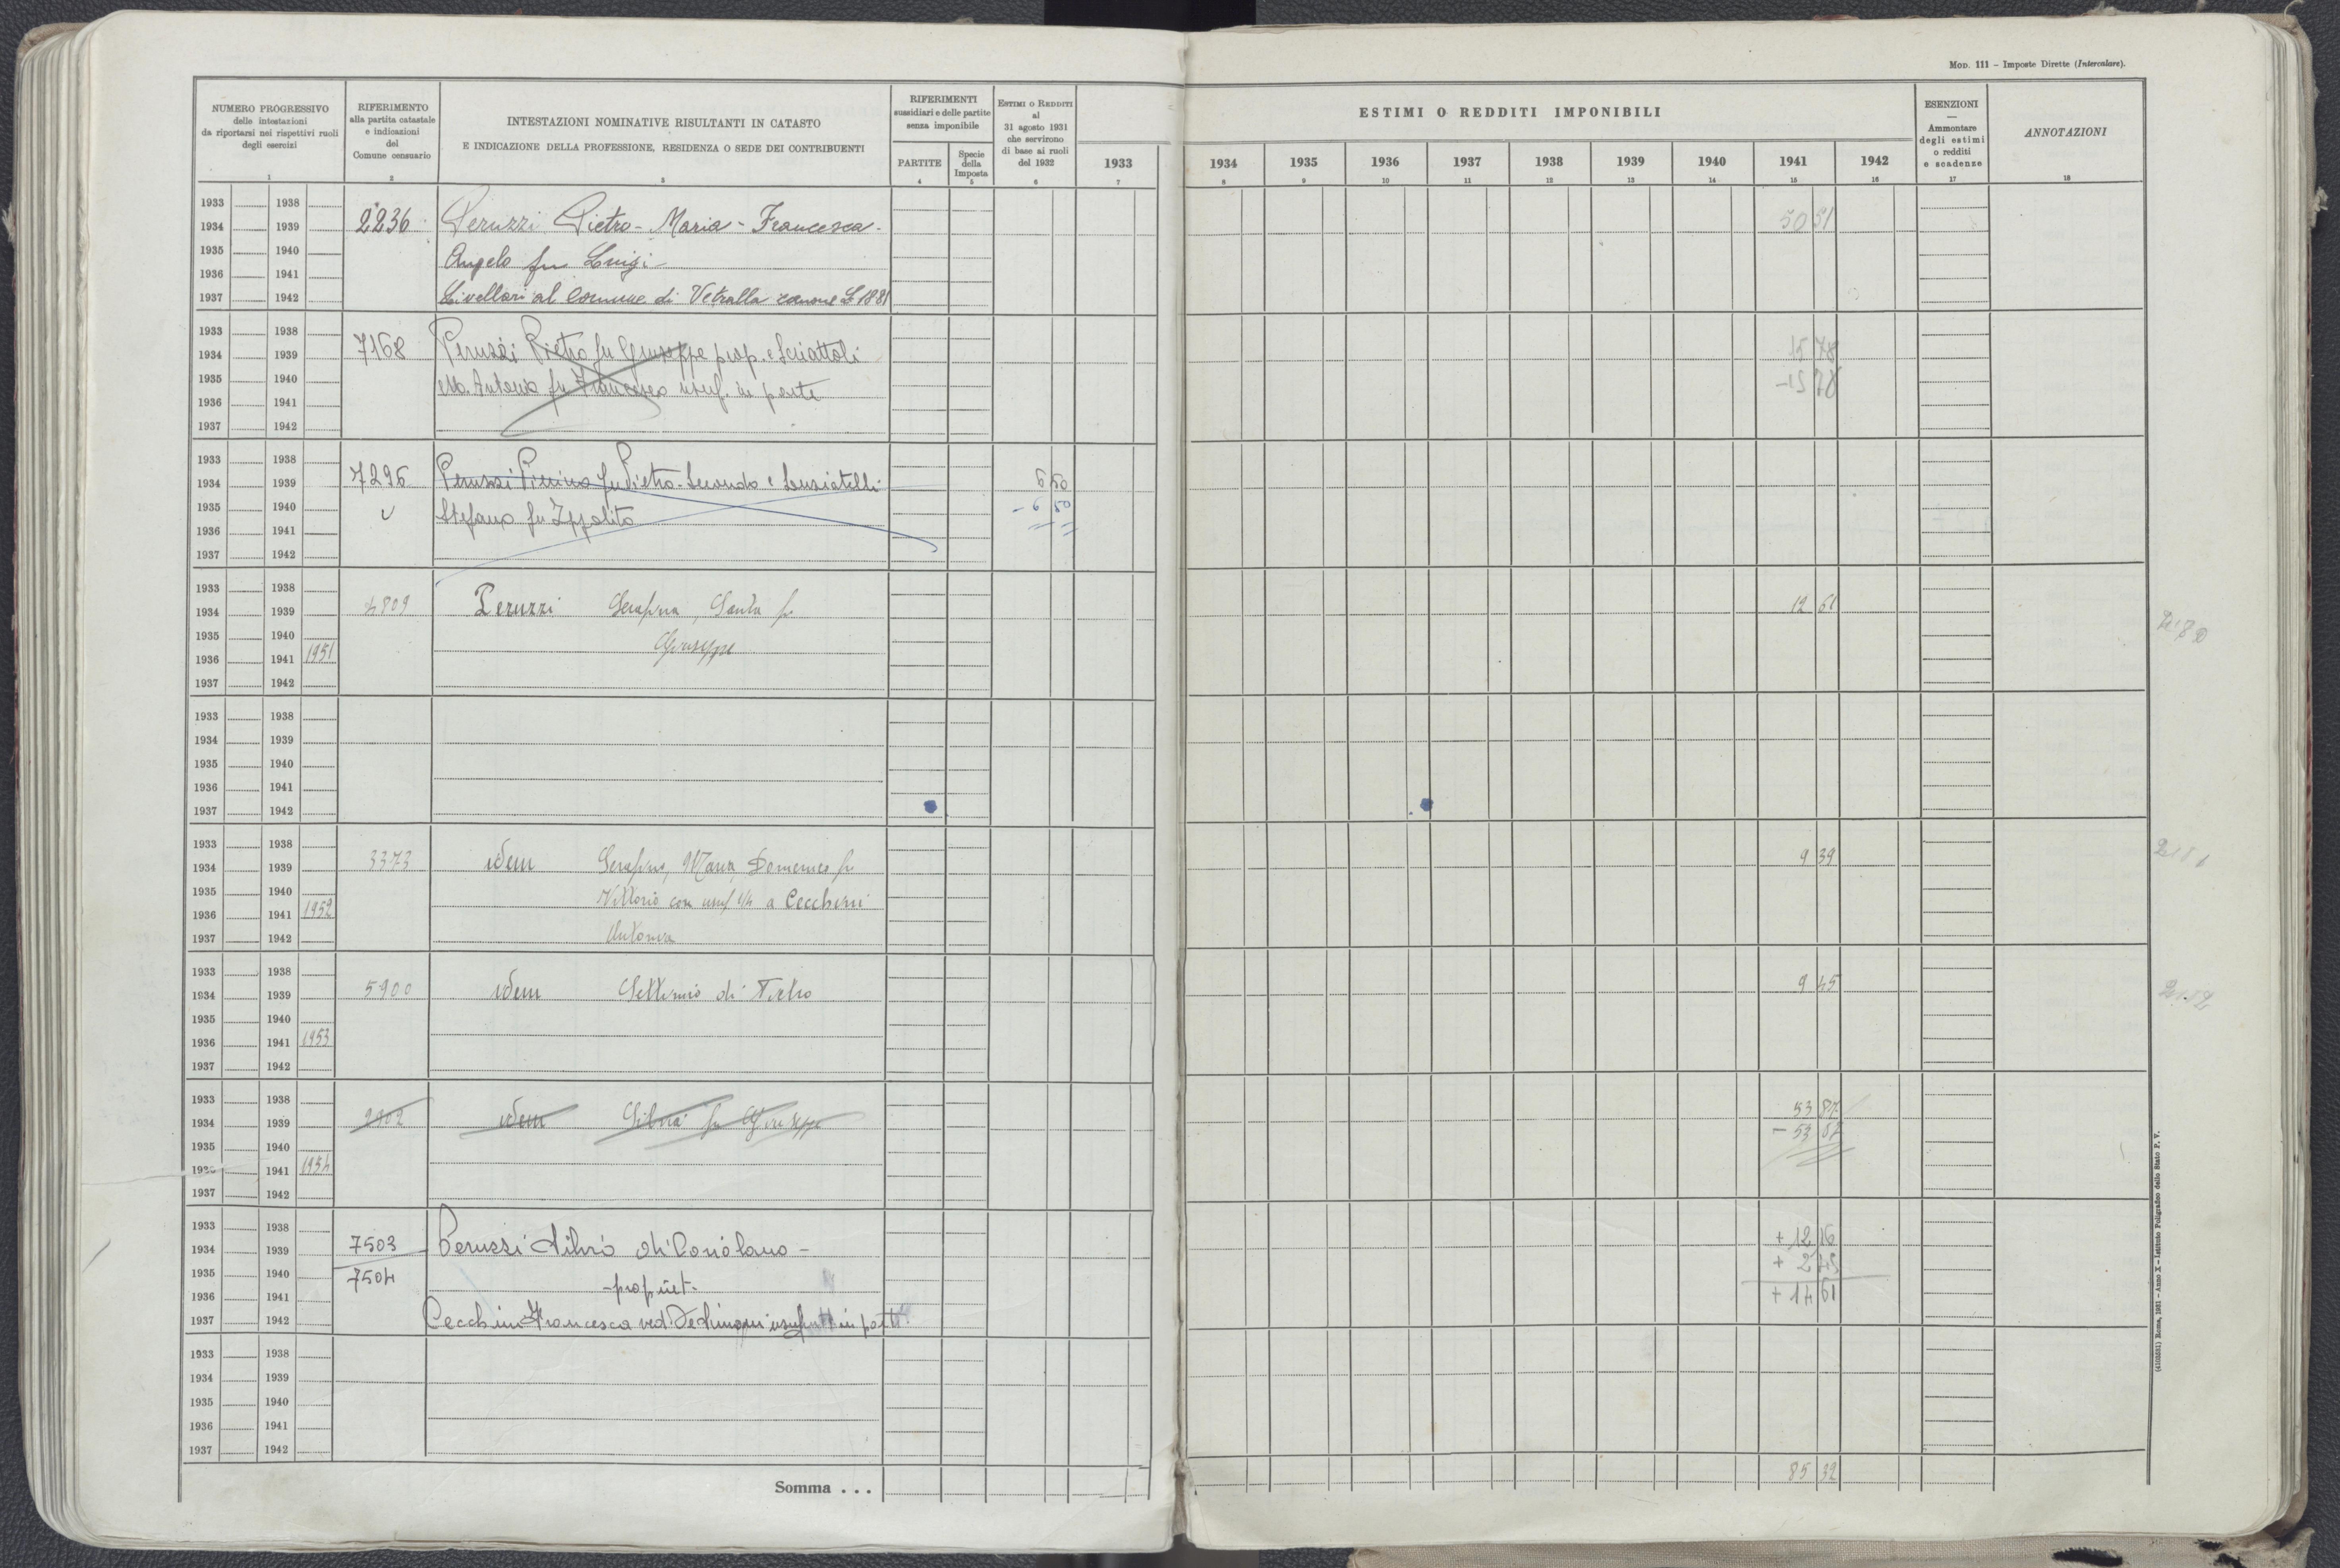 MOD. 111 – Imposte Dirette (Intercalare).
NUMERO PROGRESSIVO
delle intestazioni
da riportarsi nei rispettivi ruoli
degli esercizi
1
RIFERIMENTO
alla partita catastale
e indicazioni
del
Comune censuario
2
INTESTAZIONI NOMINATIVE RISULTANTI IN CATASTO
E INDICAZIONE DELLA PROFESSIONE, RESIDENZA O SEDE DEI CONTRIBUENTI
3
RIFERIMENTI
sussidiari e delle partite
senza imponibile
PARTITE
4
Specie
della
Imposta
5
ESTIMI O REDDITI
al
31 agosto 1931
che servirono
di base ai ruoli
del 1932
6
1933
7
ESTIMI O REDDITI IMPONIBILI
1934 1935 1936 1937 1938 1939 1940 1941 1942
8 9 10 11 12 13 14 15 16
ESENZIONI
—
Ammontare
degli estimi
o redditi
e scadenze
17
ANNOTAZIONI
18
1933 1938
1934 1939 2236 Peruzzi Pietro - Maria - Francesca - 50 51
1935 1940 Angelo fu Luigi
1936 1941
1937 1942 Livellari al Comune di Vetralla canone L 1881
1933 1938
1934 1939 7168 Peruzzi Pietro fu Giuseppe prop. e Sciattoli 15 78
1935 1940 Ma. Antonia fu Francesco usuf. in parte - 15 78
1936 1941
1937 1942
1933 1938
1934 1939 7296 Peruzzi Pierino fu Pietro - Secondo e 6 50
1935 1940 Stefano fu Ippolito - 6 50
1936 1941
1937 1942
1933 1938
1934 1939 4809 Peruzzi Serafina, Santa fu 12 61
1935 1940 Giuseppe
1936 1941 1951
1937 1942
1933 1938
1934 1939
1935 1940
1936 1941
1937 1942
1933 1938
1934 1939 3373 idem Serafino, Maria, Domenico fu 9 39
1935 1940 Vittorio con usuf 1/4 a Cecchini
1936 1941 1952
1937 1942 Antonia
1933 1938
1934 1939 5900 idem Settimio di Pietro 9 45
1935 1940
1936 1941 1953
1937 1942
1933 1938 53 87
1934 1939 2902 idem Silvia fu Giuseppe - 53 87
1935 1940
1936 1941 1954
1937 1942
1933 1938 + 12 16
1934 1939 7503 Peruzzi Silvio di Coriolano - + 2 45
1935 1940 7504 - propriet -
1936 1941 + 14 61
1937 1942 Cecchini Francesca ved. in parte
1933 1938
1934 1939
1935 1940
1936 1941
1937 1942
Somma . . . 85 32
(4103531) Roma, 1931 – Anno X – Istituto Poligrafico dello Stato P. V.